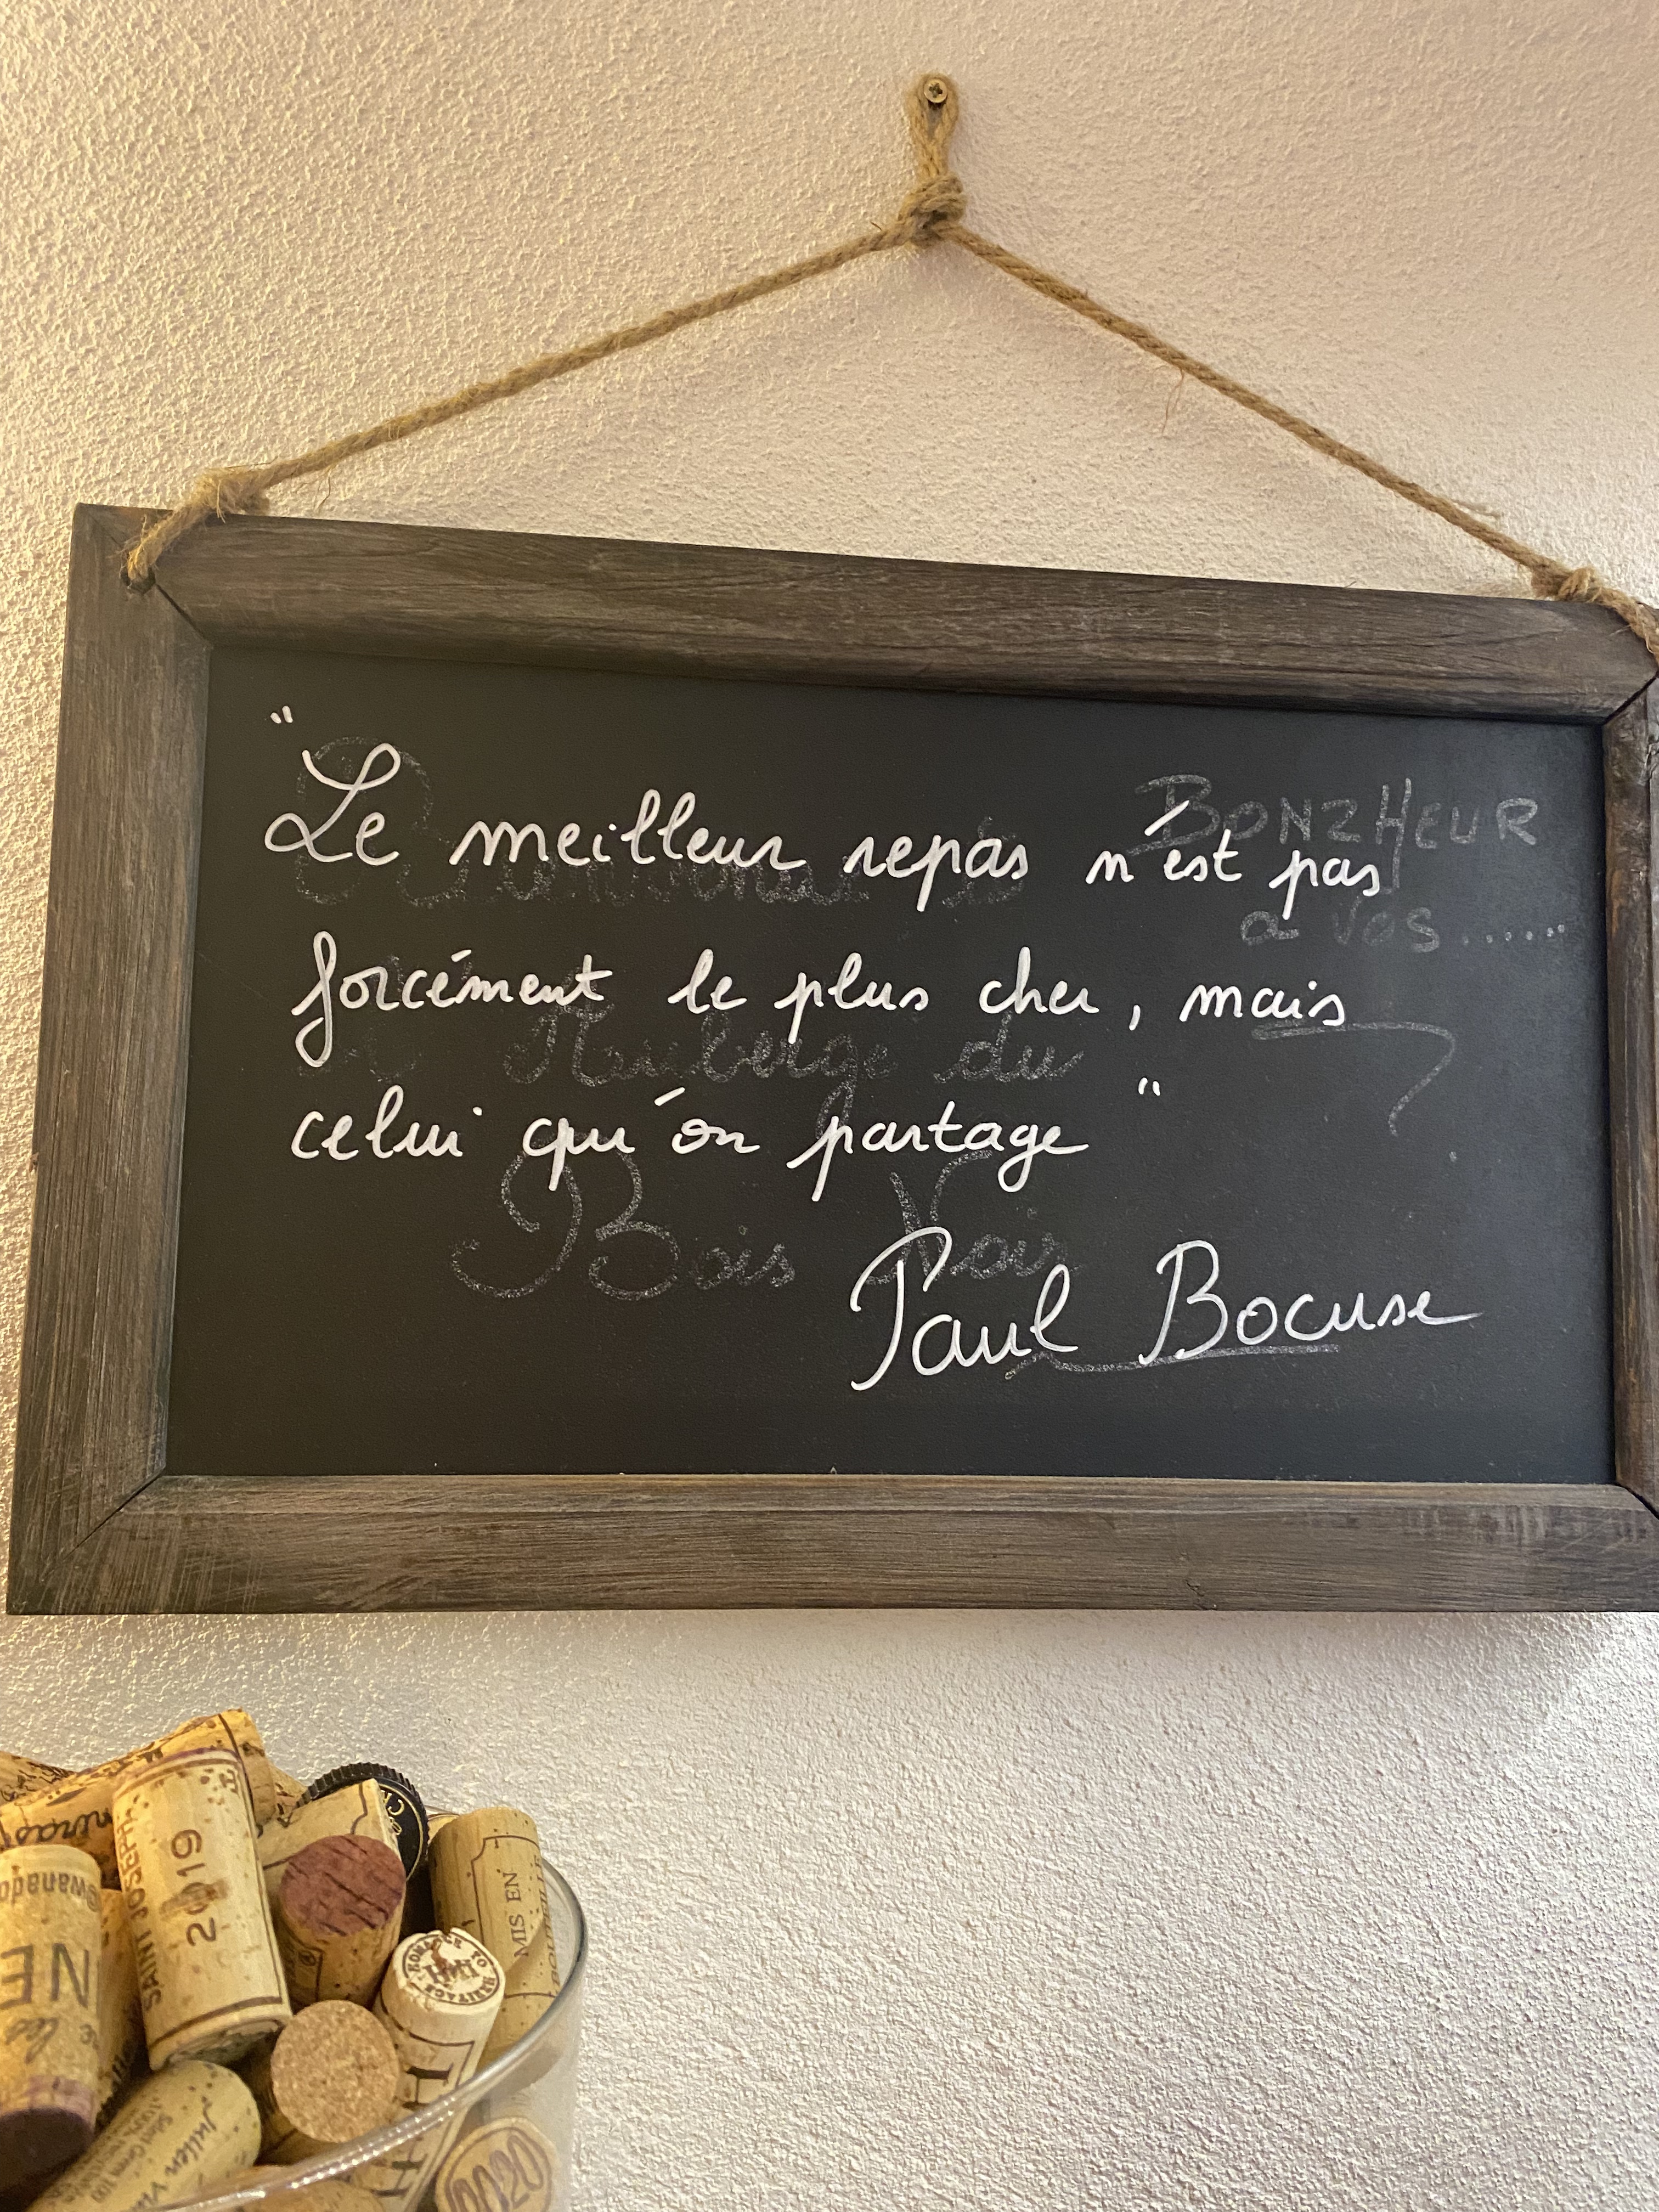 " Le meilleur repas n'est pas
forcément le plus cher, mais
celui qu'on partage "
Paul Bocuse
BONZHEUR
a Vos......
Auberge du
Bois Noir
SAINT JOSEPH
2019
MIS EN
@wanado
NE
les
HERITAGE
Julien
2020